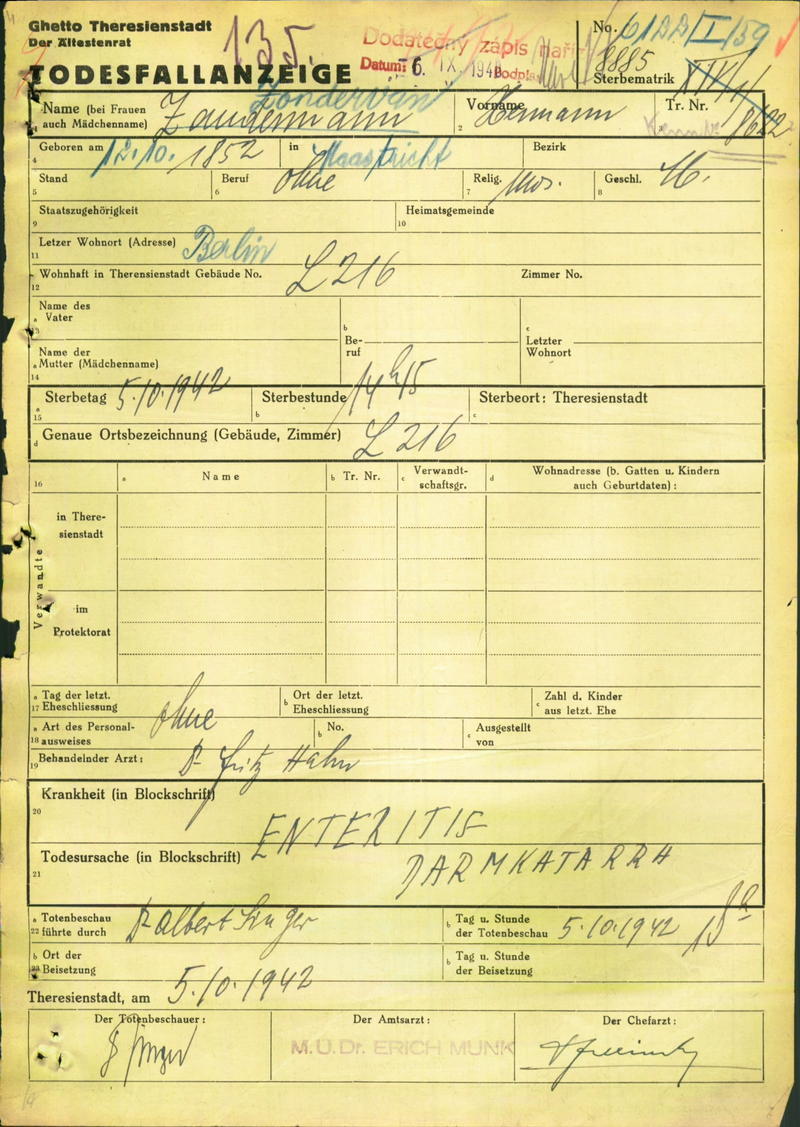 Ghetto Theresienstadt
Der Ältestenrat
135.
Dodatečný zápis naříz
Datum: 6. IX. 194 Podpis
No. 61BB/I/59
8885
Sterbematrik
TODESFALLANZEIGE
Zondervan
Name (bei Frauen auch Mädchenname) Zandermann
Vorname Hermann
Tr. Nr. 8622
Geboren am 12.10. 1852 in Maastricht Bezirk
Stand Beruf ohne Relig. mos. Geschl. M.
Staatszugehörigkeit Heimatsgemeinde
Letzer Wohnort (Adresse) Berlin
Wohnhaft in Theresienstadt Gebäude No. L 216 Zimmer No.
Name des Vater
Name der Mutter (Mädchenname)
Be-ruf
Letzter Wohnort
Sterbetag 5.10.1942 Sterbestunde 14h15 Sterbeort: Theresienstadt
Genaue Ortsbezeichnung (Gebäude, Zimmer) L 216
Name Tr. Nr. Verwandt-schaftsgr. Wohnadresse (b. Gatten u. Kindern auch Geburtdaten):
Verwandte
in There-sienstadt
im Protektorat
Tag der letzt. Eheschliessung Ort der letzt. Eheschliessung Zahl d. Kinder aus letzt. Ehe
ohne
Art des Personal-ausweises No. Ausgestellt von
Behandelnder Arzt: Dr Fritz Hahn
Krankheit (in Blockschrift)
ENTERITIS
Todesursache (in Blockschrift) DARMKATARRH
Totenbeschau führte durch Dr Albert Singer Tag u. Stunde der Totenbeschau 5.10.1942
Ort der Beisetzung Tag u. Stunde der Beisetzung
Theresienstadt, am 5.10.1942
Der Totenbeschauer: Der Amtsarzt: Der Chefarzt:
M.U.Dr. ERICH MUNK